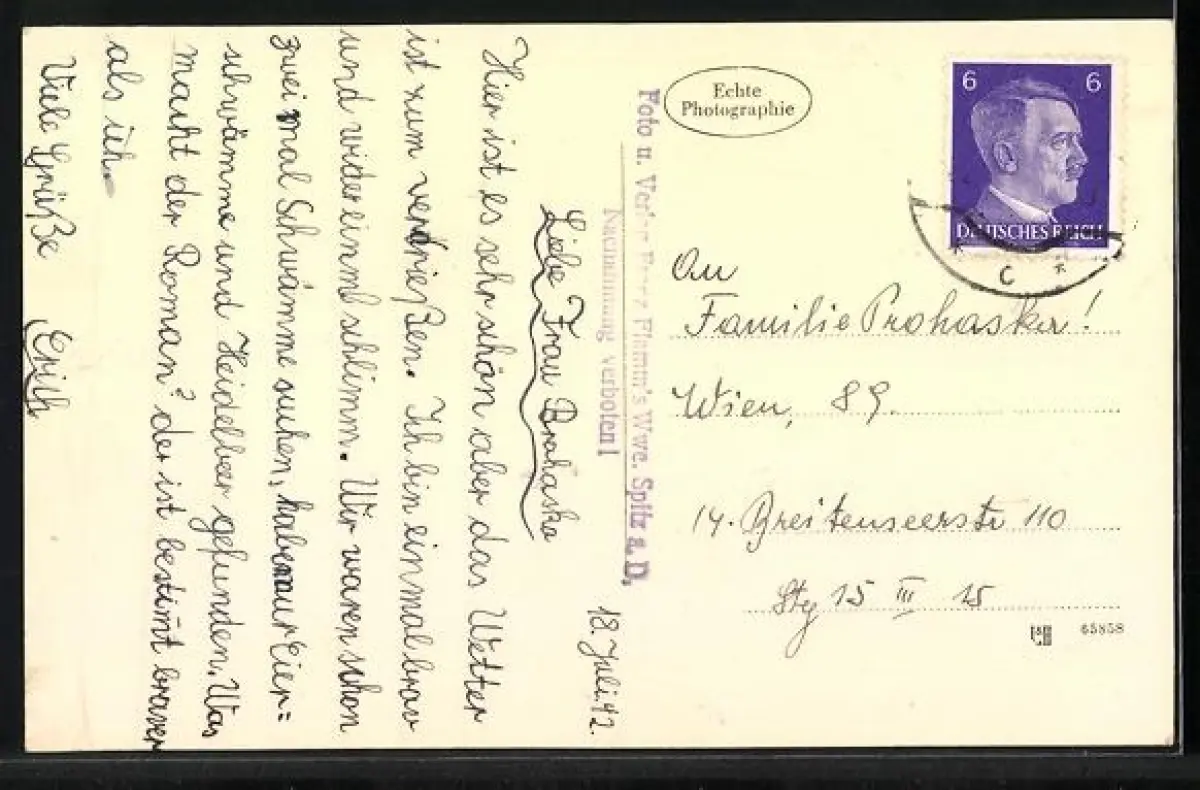 18. Juli. 42.
Liebe Frau Brohaska
Hier ist es sehr schön aber das Wetter
ist zum verdrießen. Ich bin einmal brav
und wider einml schlimm. Wir waren schon
zwei mal Schwämme suchen, haben nur Eier=
schwämme und Heidelber gefunden. Was
macht der Roman? der ist bestimt braver
als ich.
Viele Grüße Erich
Foto u. Verlag Franz Flamm's Wwe. Spitz a. D.
Nachahmung verboten!
Echte
Photographie
6 6
DEUTSCHES REICH
C
An
Familie Prohasker!
Wien, 89.
14. Breitenseerstr 110
Stg 15 III 15
65858